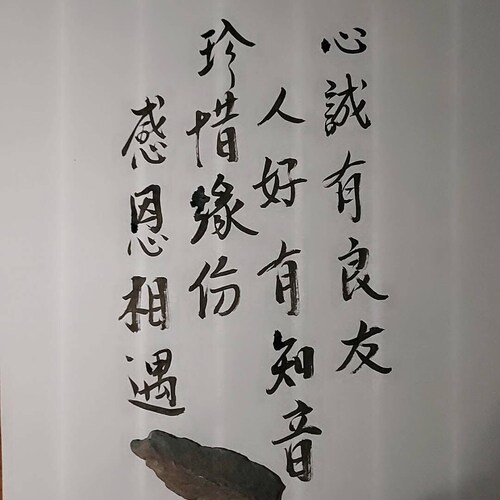 心誠有良友
人好有知音
珍惜緣份
感恩相遇